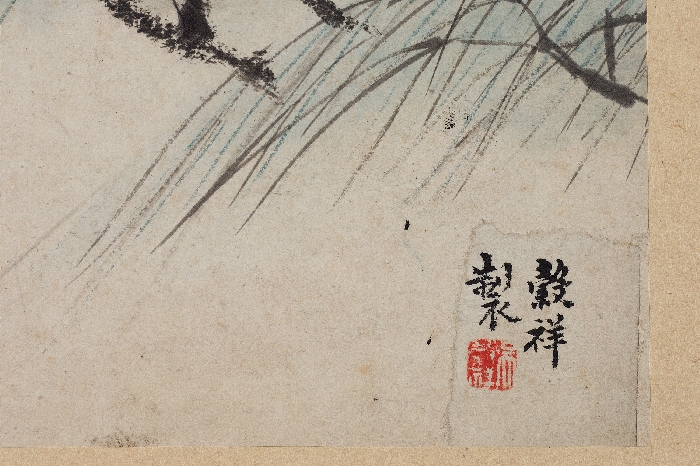 穀祥
製